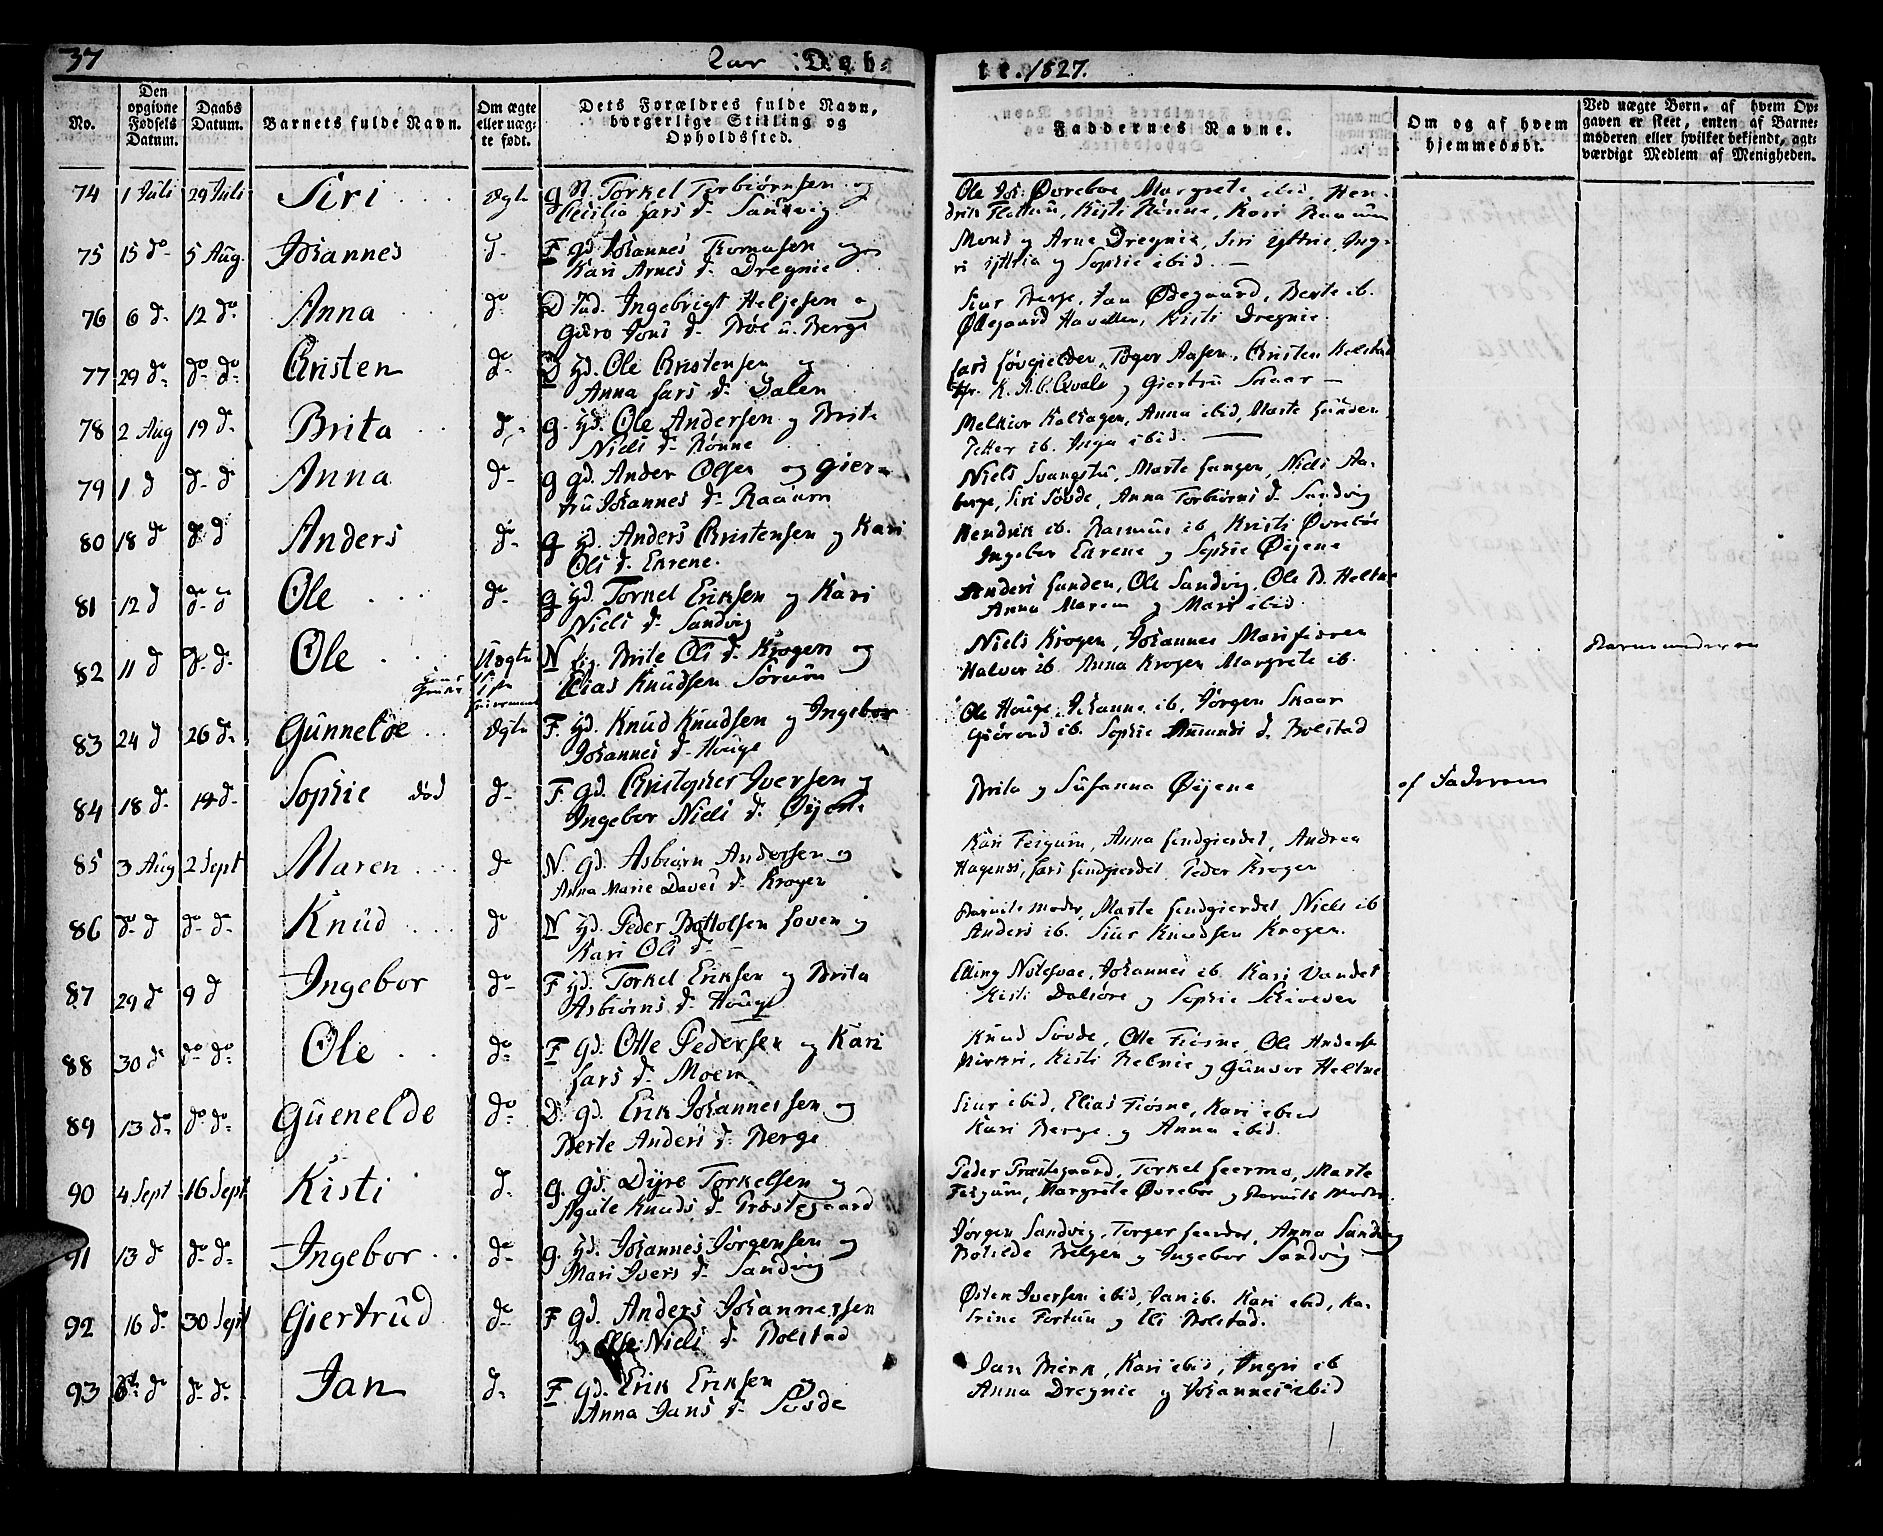 37 Aar Døb- te. 1827.
No.
Den opgivne Fødsels Datum.
Daabs Datum.
Barnets fulde Navn.
Om ægte eller uæg- te født.
Dets Forældres fulde Navn, borgerlige Stilling og Opholdssted.
Faddernes Navne.
Om og af hvem hjemmedøbt.
Ved uægte Børn, af hvem Op- gaven er skeet, enten af Barne- moderen eller hvilket bekjendt, agt- værdigt Medlem af Menigheden.
74 1 Juli 29 Juli Siri ægte G N. Torkel Torbiørnsen og
Cecilia Lars d. Sandvig
Ole Joh: Øvreboe, Margrete ibid, Hen-
drik Flettum, Kisti Rønne, Kari Raaum
75 15 do 5 Aug. Johannes d. F gd. Johannes Thomasen og
Kari Arnes d. Dregnie
Mons og Arne Dregnie, Siri Yttrie, Ing-
ri Yttrie og Sophie ibid.
76 6 d. 12 do Anna do D Ingebrigt Heljesen og
Giøro Jons d. Bøe u. Berge
Siur Berge, Jan Ødegaard, Berte ib.
Ødegaard Havellen, Kisti Dregnie.
77 29 do do do Christen do D hd. Ole Christensen og
Anna Lars d. Dalen
Lars Løvgielder, Roger Aasen, Christen Kolstad
Hr. K. A. C. Qvale og Giertru Snaar
78 2 Aug 19 d. Brita d. G. hd. Ole Andersen og Brite
Niels d. Rønne
Melkior Kalhagen, Anna ibid, Marte Sunden
Petter ib. Inga ibid.
79 1 d d. d Anna d. G gd. Ander Olsen og Gier-
tru Johannes d. Raaum
Niels Svangstu, Marte Haugen, Niels Aa-
berge, Siri Søvde, Anna Torbiørns d. Sandvig
80 18 d d. d Anders d. G hd. Anders Christensen og Kari
Ols d. Ekrene.
Hendrik ib. Rasmus ib, Kristi Øvreboe
Ingebor Ekrene og Sophie Øijene
81 12 d d. d Ole d. G hd. Torkel Eriksen og Kari
Niels d. Sandvig
Anders Sunden, Ole Sandvig, Ole B. Heltne
Anna Maren og Mari ibid
82 11 d d. d. Ole Uægte N Brite Ols d. Krogen og
Elias Knudsen Sørum
Niels Krogen, Johannes Marifiæren
Halvor ib. Anna Krogen Margrete ib.
Barnemoderen
83 24 d 26 d. Gunnelde ægte F. hd. Knud Knudsen og Ingebor
Johannes d. Houge
Ole Houge, Johanne ib, Jørgen Snaar
Giørond ib. Sophie Amunds d. Bolstad
84 18 d. 14 d. Sophie død d. F. gd. Christopher Iversen og
Ingebor Niels d. Øijene
Brita og Susanna Øijene
af Faderen
85 3 Aug 2 Sept Maren do N. gd. Asbiørn Andersen og
Anna Marie Daves d. Kroger
Kari Feigum, Anna Sendgierdet, Andrea
Hagensi, Lars Sendgierdet Peder Kroger
86 do d do d. Knud d N hd. Peder Bottolfsen Loven og
Kari Ols d.
Barnets Moder, Marte Sendgierdet, Niels ib
Anders ib. Siur Knudsen Krogen.
87 29 d 9 d Ingebor d. F hd. Torkel Eriksen og Brita
Asbiørns d. Houge
Elling Nolesvae, Johannes ib Kari Vandet
Kisti Dalsøre og Sophie
88 30 d do do Ole do F gd. Olle Pedersen og Kari
Lars d. Moen
Knud Søvde, Olle Fiøsne, Ole Anders
Kisti Rebnie og Gunvor Heltne
89 13 do do do Guenelde do D. gd. Erik Johannessen og
Berte Anders d. Berge
Siur ibid, Elias Fiøsne, Kari ibid
Kari Berge og Anna ibid.
90 4 Sept 16 Sept Kisti d. G. gd. Dyre Torkelsen og
Agate Knuds d. Prestegaard
Peder Præstegaard, Torkel Leermo, Marte
Feigum, Margrete Øvreboe og Barnets Moder.
91 13 d do do Ingebor do G. hd. Johannes Jørgensen og
Mari Ivers d. Sandvig
Jørgen Sandvig, Torger Leerdes, Anna Sandvig
Botilde Bolgen og Ingebor Sandvig
92 16 do 30 Sept Giertrud do F gd. Anders Johannessen
og Else Niels d. Bolstad
Østen Iversen ibid, Jan ib. Kari ibid, Ka-
trine Fortun og Eli Bolstad.
93 6 d d. d. Jan d. F gd. Erik Eriksen og
Anna Jans d. Søvde
Jan Bierk, Kari ibid, Ingri ib
Anna Dregnie og Johannes ibid